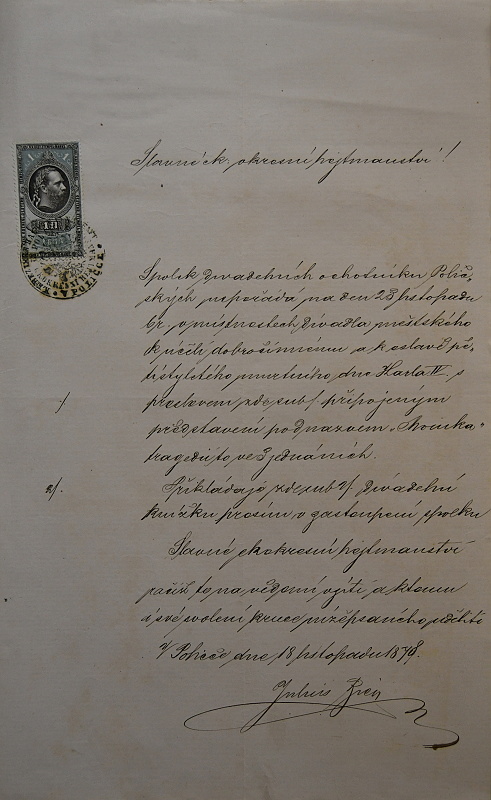 Slavné c.k. okresní hejtmanství!
Spolek divadelních ochotníků Polič-
ských uspořádá na den 28 listopadu
br. v místnostech divadla městského
k účeli dobročinnému a k oslavě pě-
tistyletého úmrtního dne Karla IV. s
proslovem zde sub 1/ připojeným
1/
představení pod názvem „Monika“
tragedii to ve 3 jednáních.
2/. Přikládaje zde sub 2/. divadelní
knížku prosím v zastoupení spolku
Slavné ck okresní hejtmanství
račiž to na vědomí vzíti a k tomu
i své svolení kruce nížepsaného uděliti
V Poličce dne 18 listopadu 1878.
Julius